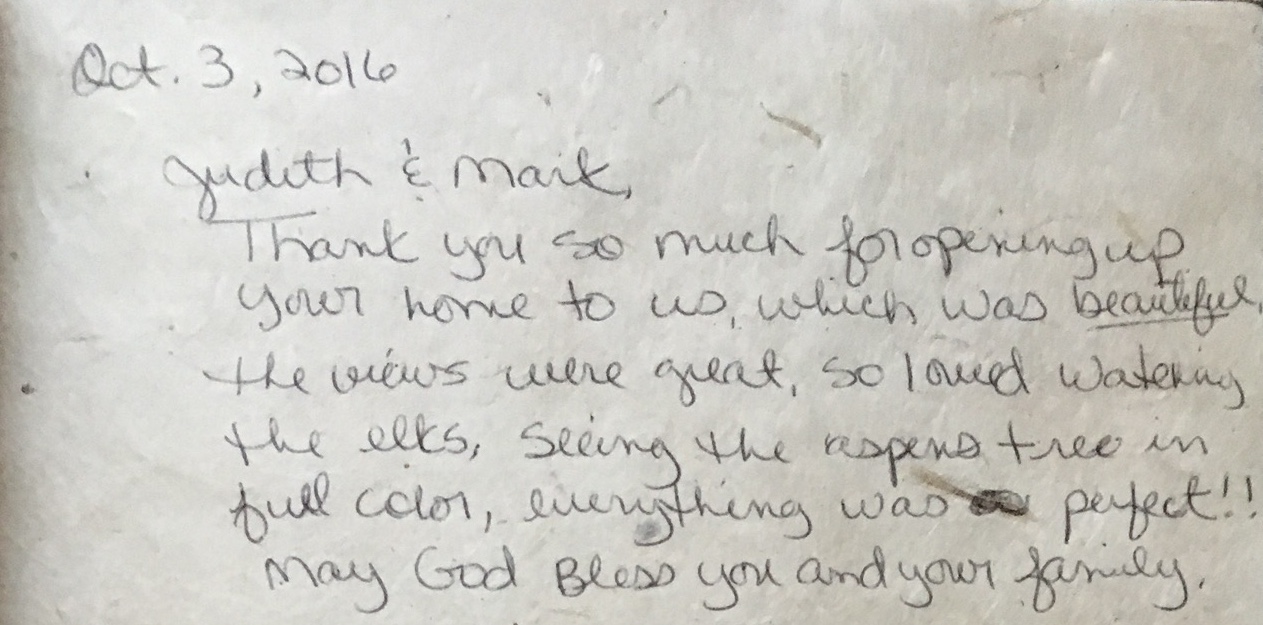 Oct. 3, 2016
Judith & Mark,
Thank you so much for opening up
your home to us, which was beautiful,
the views were great, so loved watering
the elks, seeing the aspens tree in
full color, everything was perfect!!
May God Bless you and your family.